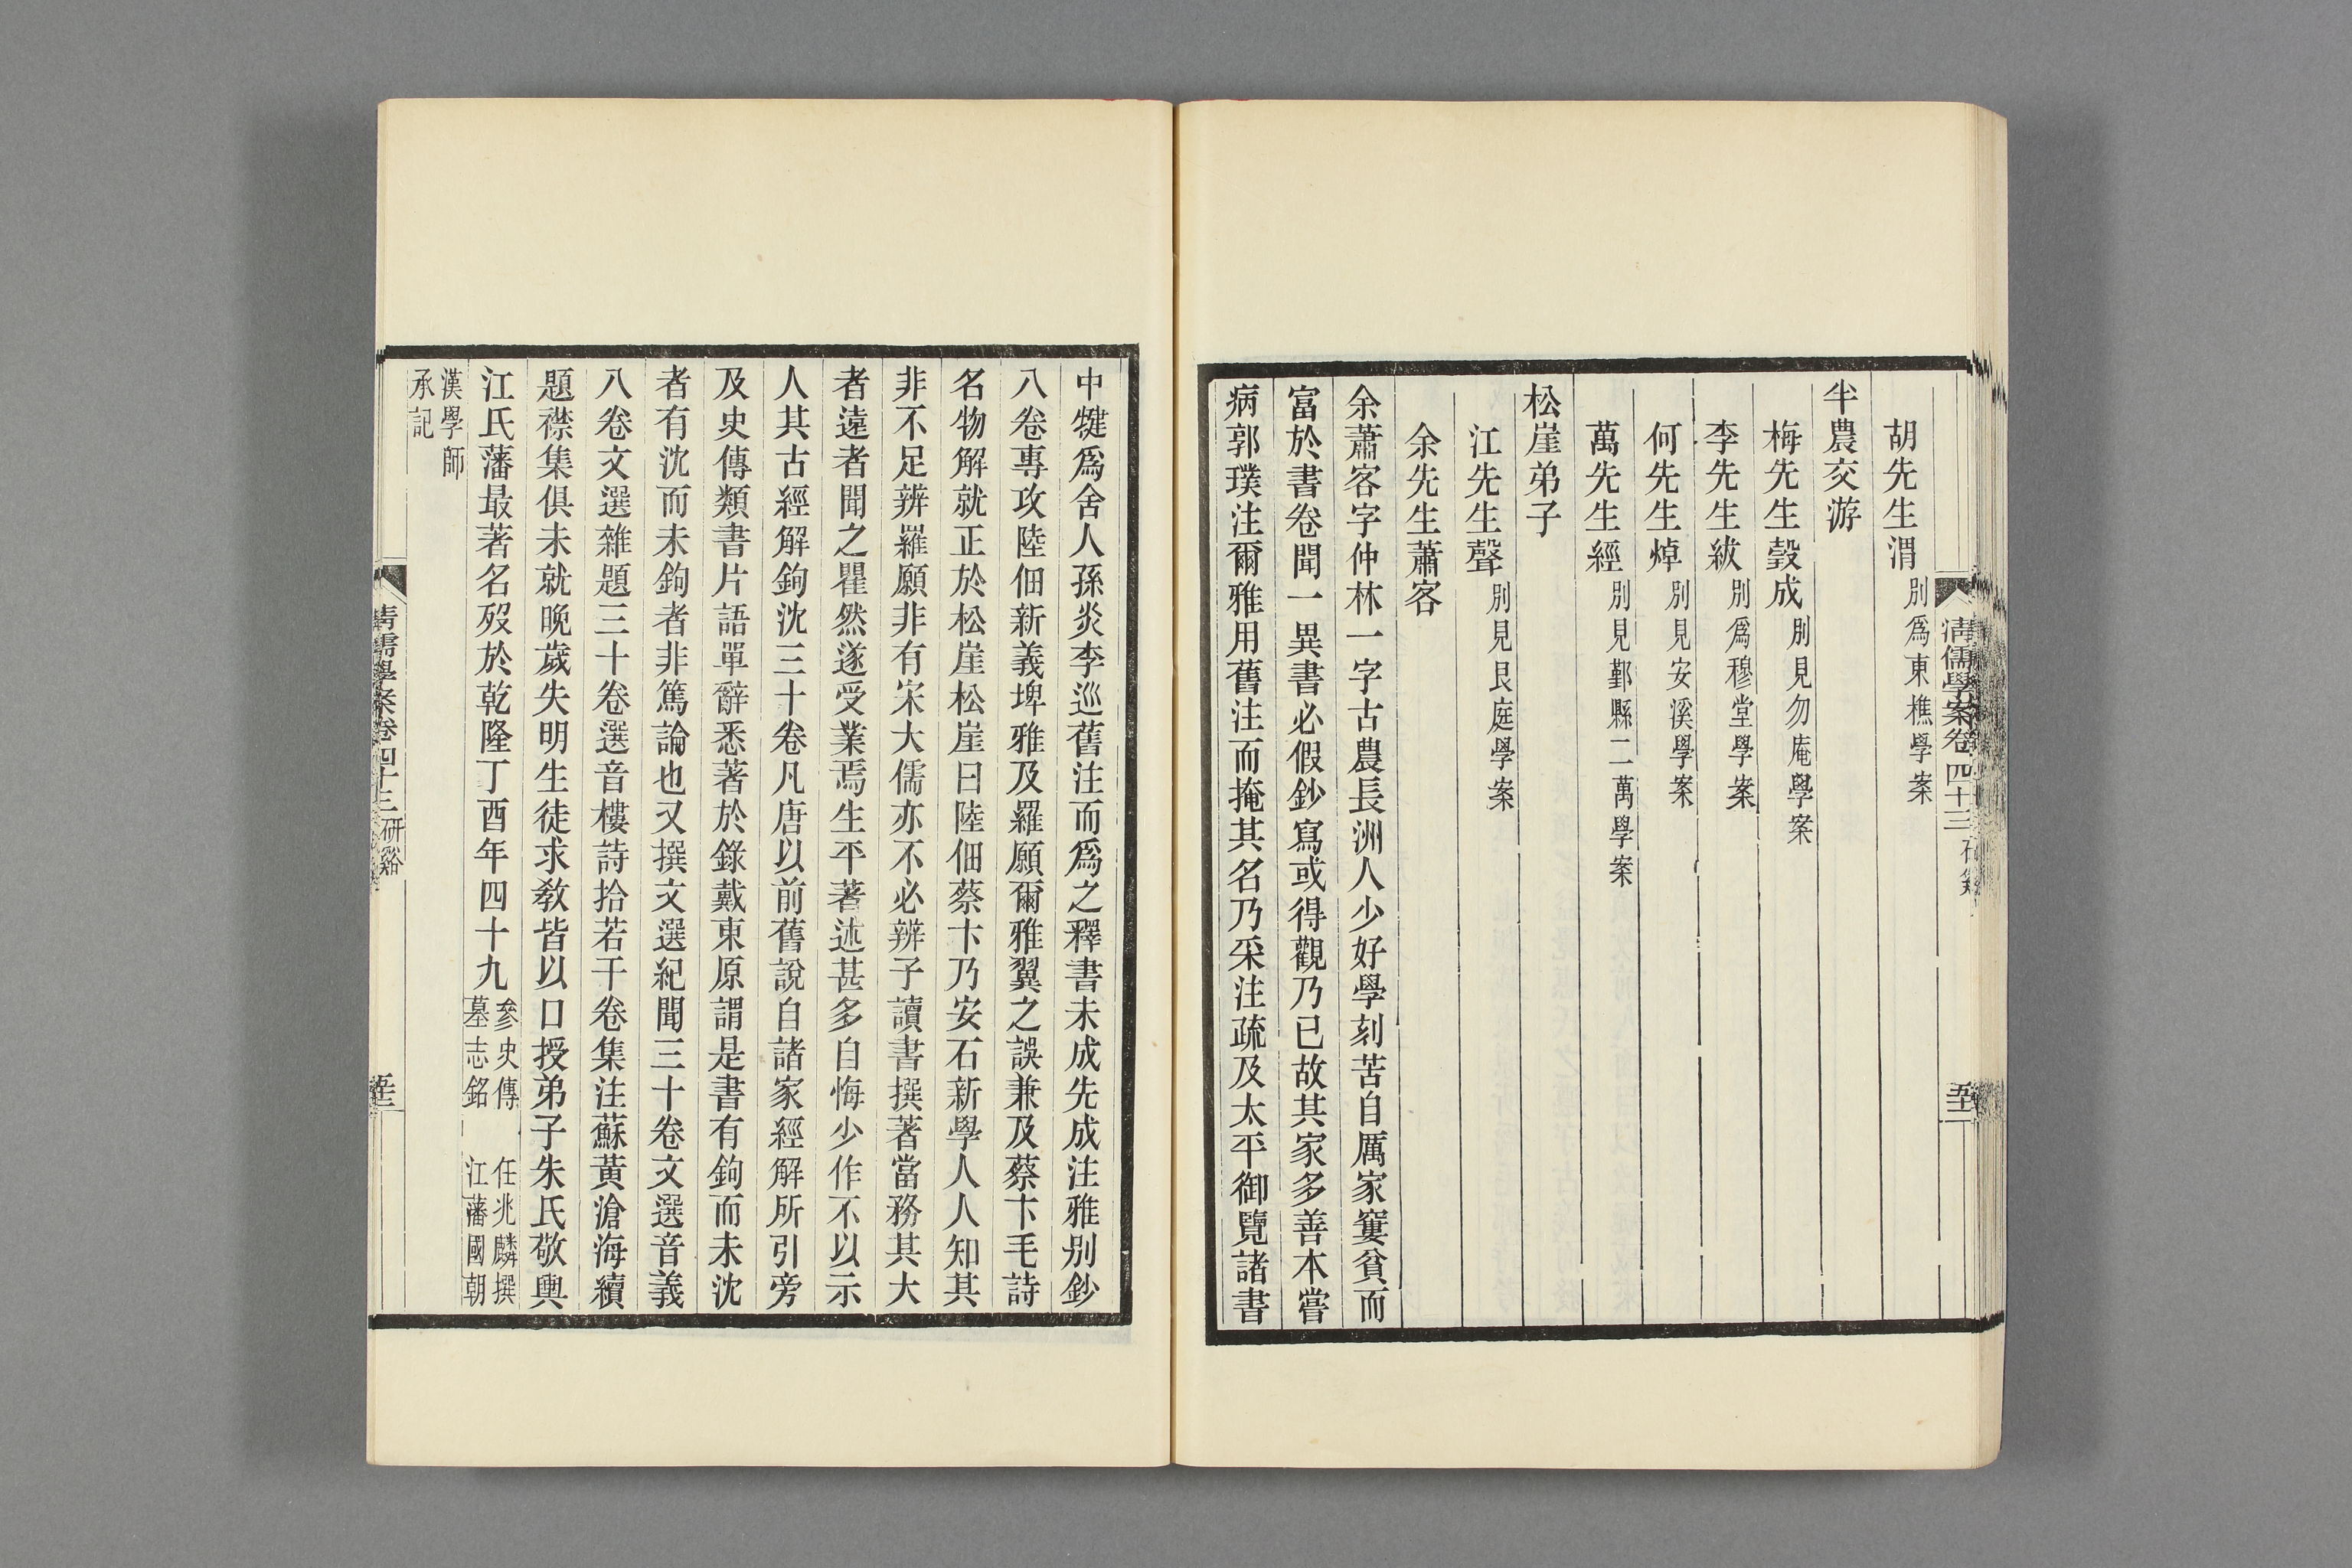 胡先生渭別爲東樵學案
半農交游
梅先生瑴成別見勿庵學案
李先生紱別爲穆堂學案
何先生焯別見安溪學案
萬先生經別見鄞縣二萬學案
松崖弟子
江先生聲別見艮庭學案
余先生蕭客
余蕭客字仲林一字古農長洲人少好學刻苦自厲家窶貧而
富於書卷聞一異書必假鈔寫或得觀乃已故其家多善本嘗
病郭璞注爾雅用舊注而掩其名乃采注疏及太平御覽諸書
清儒學案卷四十三
中犍爲舍人孫炎李巡舊注而爲之釋書未成先成注雅別鈔
八卷專攻陸佃新義埤雅及羅願爾雅翼之誤兼及蔡卞毛詩
名物解就正於松崖松崖曰陸佃蔡卞乃安石新學人人知其
非不足辨羅願非有宋大儒亦不必辨子讀書撰著當務其大
者遠者聞之瞿然遂受業焉生平著述甚多自悔少作不以示
人其古經解鉤沈三十卷凡唐以前舊說自諸家經解所引旁
及史傳類書片語單辭悉著於錄戴東原謂是書有鉤而未沈
者有沈而未鉤者非篤論也又撰文選紀聞三十卷文選音義
八卷文選雜題三十卷選音樓詩拾若干卷集注蘇黃滄海續
題襟集俱未就晚歲失明生徒求教皆以口授弟子朱氏敬輿
江氏藩最著名歿於乾隆丁酉年四十九參史傳 任兆麟撰
墓志銘 江藩國朝
漢學師
承記
清儒學案卷四十三 研谿